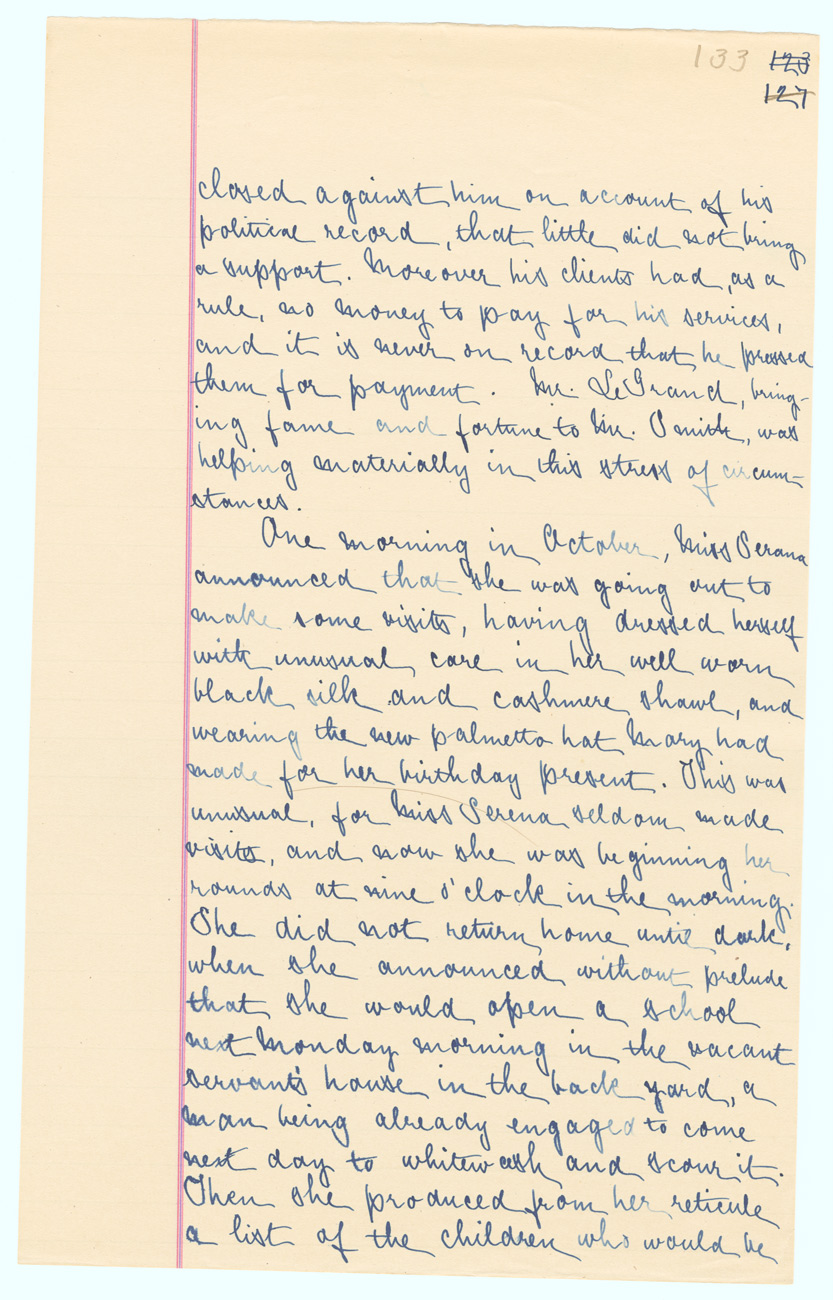 133 123
127
closed against him on account of his
political record, that little did not bring
a support. Moreover his clients had, as a
rule, no money to pay for his services,
and it is never on record that he pressed
them for payment. Mr. LeGrand, bring-
ing fame and fortune to Mr. Smith, was
helping materially in this stress of circum-
stances.
One morning in October, Miss Serana
announced that she was going out to
make some visits, having dressed herself
with unusual care in her well worn
black silk and cashmere shawl, and
wearing the new palmetto hat Mary had
made for her birthday present. This was
unusual, for Miss Serena seldom made
visits, and now she was beginning her
rounds at nine o'clock in the morning.
She did not return home until dark,
when she announced without prelude
that she would open a school
next Monday morning in the vacant
servant's house in the back yard, a
man being already engaged to come
next day to whitewash and scour it.
Then she produced from her reticule
a list of the children who would be